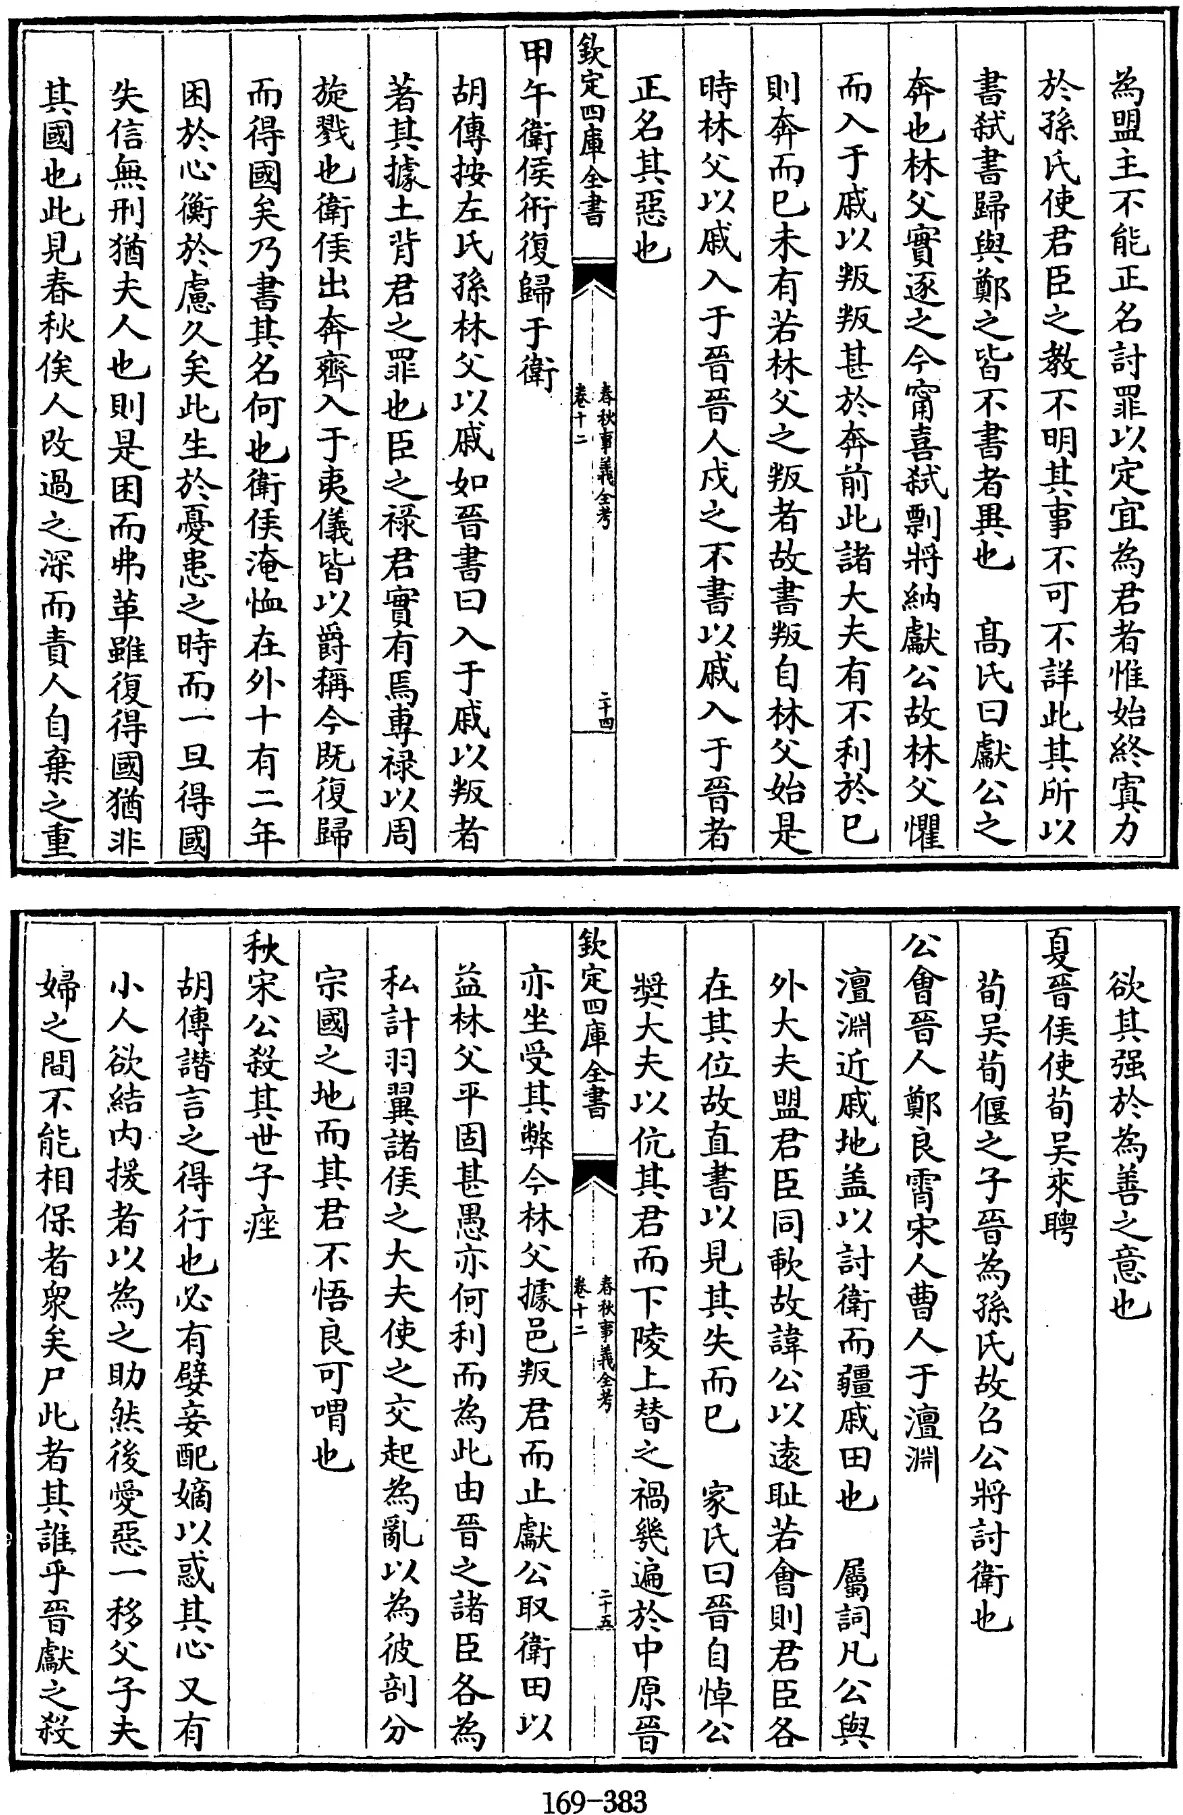 為盟主不能正名討罪以定宜為君者惟始終寘力
於孫氏使君臣之教不明其事不可不詳此其所以
書弑書歸與鄭之皆不書者異也　髙氏曰獻公之
奔也林父實逐之今甯喜弑剽將納獻公故林父懼
而入于戚以叛叛甚於奔前此諸大夫有不利於已
則奔而已未有若林父之叛者故書叛自林父始是
時林父以戚入于晉晉人戍之不書以戚入于晉者
正名其惡也
欽定四庫全書
春秋事義全考
卷十二
二十四
甲午衛侯衎復歸于衛
胡傳按左氏孫林父以戚如晉書曰入于戚以叛者
著其據土背君之罪也臣之禄君實有焉專禄以周
旋戮也衛侯出奔齊入于夷儀皆以爵稱今既復歸
而得國矣乃書其名何也衛侯淹恤在外十有二年
困於心衡於慮久矣此生於憂患之時而一旦得國
失信無刑猶夫人也則是困而弗革雖復得國猶非
其國也此見春秋俟人改過之深而責人自棄之重
欲其强於為善之意也
夏晉侯使荀吴來聘
荀吴荀偃之子晉為孫氏故召公將討衛也
公會晉人鄭良霄宋人曹人于澶淵
澶淵近戚地盖以討衛而疆戚田也　屬詞凡公與
外大夫盟君臣同歃故諱公以逺耻若會則君臣各
在其位故直書以見其失而已　家氏曰晉自悼公
奬大夫以伉其君而下陵上替之禍㡬遍於中原晉
欽定四庫全書
春秋事義全考
卷十二
二十五
亦坐受其弊今林父據邑叛君而止獻公取衛田以
益林父平固甚愚亦何利而為此由晉之諸臣各為
私計羽翼諸侯之大夫使之交起為亂以為彼剖分
宗國之地而其君不悟良可喟也
秋宋公殺其世子痤
胡傳譖言之得行也必有嬖妾配嫡以惑其心又有
小人欲結内援者以為之助然後愛惡一移父子夫
婦之間不能相保者衆矣尸此者其誰乎晉獻之殺
169-383